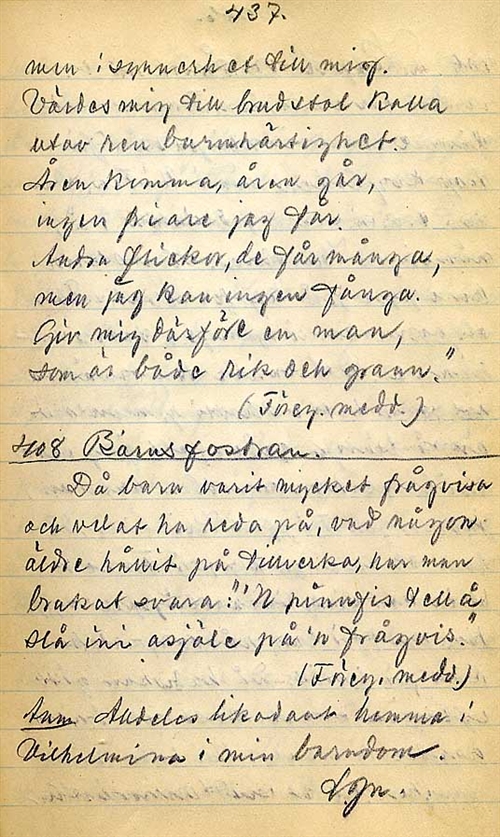 437.
men i synnerhet till mig.
Värdes mig till brudstol kalla
utav ren barmhärtighet.
Åren komma, åren går,
ingen friare jag får.
Andra flickor, de får många,
men jag kan ingen fånga.
Giv mig därföre en man,
som är både rik och grann."
(Föreg. medd.)
408 Barnsfostran.
Då barn varit mycket frågvisa
och velat ha reda på, vad någon
äldre hållit på tillverka, har man
brukat svara: "'N pinnfis tell å
slå ini asjöle på 'n frågvis."
(Föreg. medd.)
Anm. Alldeles likadant hemma i
Vilhelmina i min barndom.